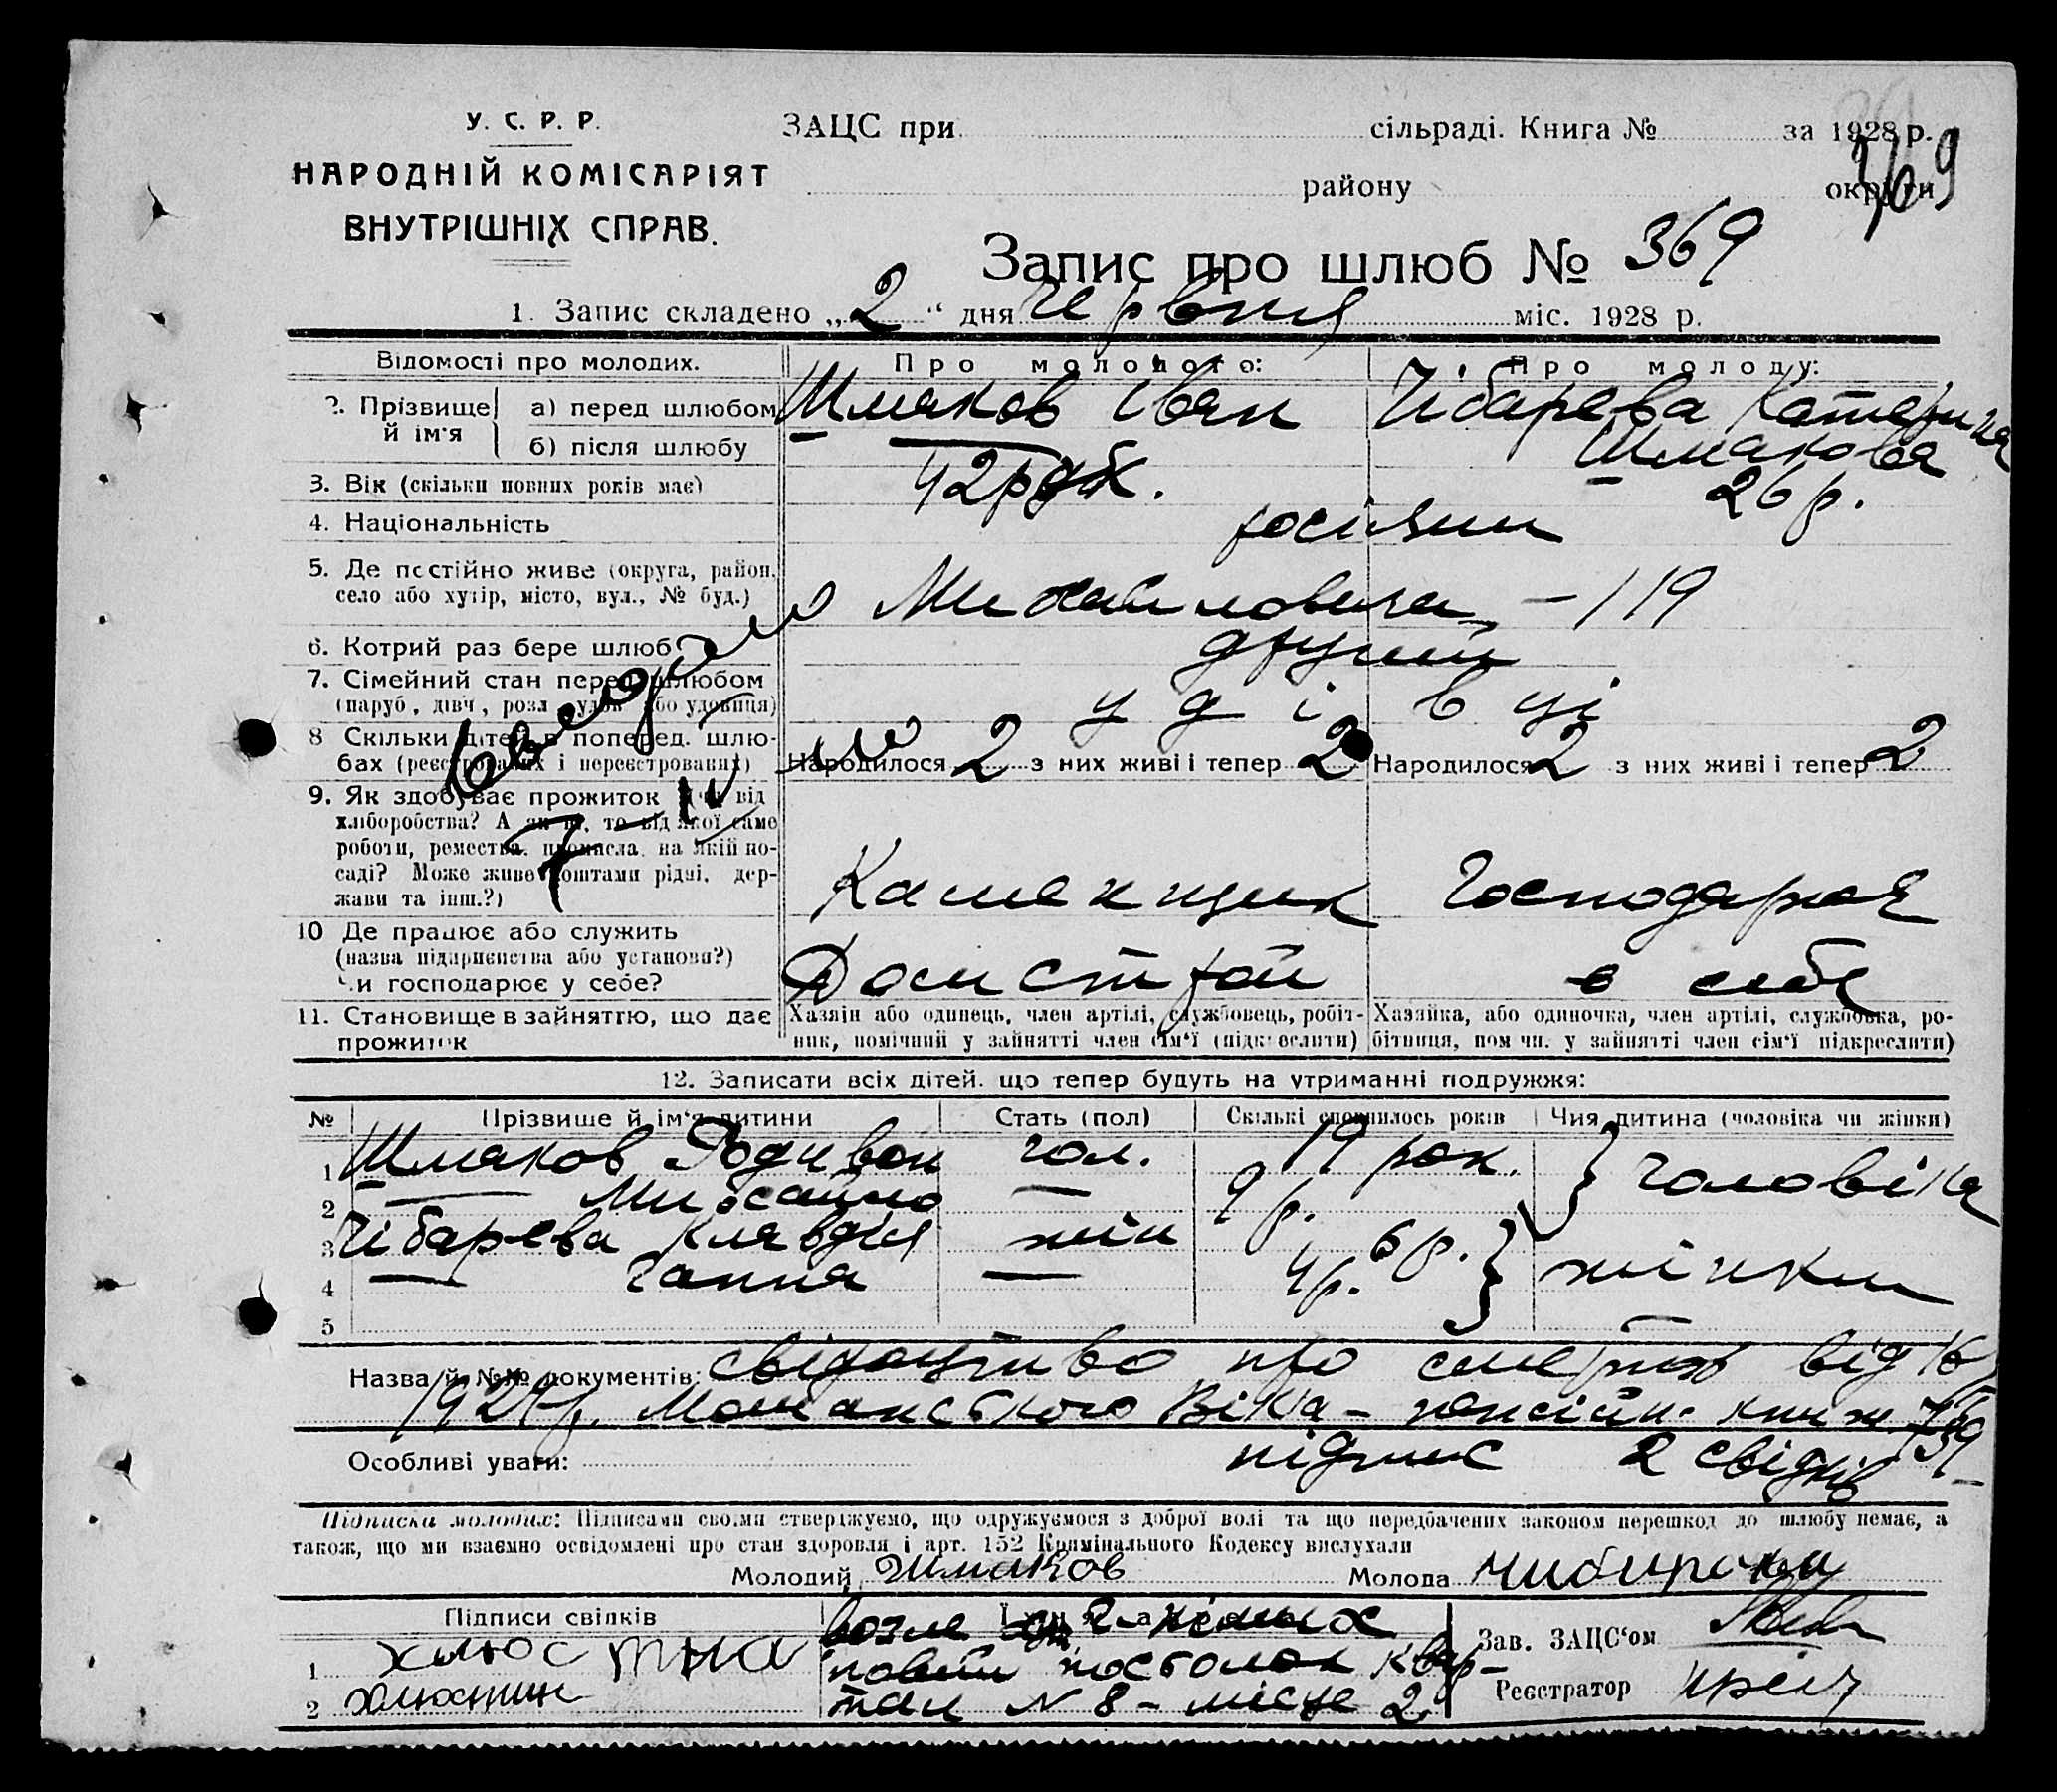 У. С. Р. Р.
НАРОДНІЙ КОМІСАРІЯТ
ВНУТРІШНІХ СПРАВ.
ЗАЦС при сільраді. Книга № за 1928 р.
369
району округи
Запис про шлюб № 369
1. Запис складено „2“ дня червня міс. 1928 р.
Відомості про молодих. Про молодого: Про молоду:
2. Прізвище й ім'я а) перед шлюбом Шмаков Іван Чібарева Катерина
б) після шлюбу Шмакова
3. Вік (скільки повних років має) 42 26 р.
4. Національність росіяни
5. Де постійно живе (округа, район, село або хутір, місто, вул., № буд.) Михайловича – 119
6. Котрий раз бере шлюб другий
7. Сімейний стан перед шлюбом (паруб., дівч., розл., удов. або удовиця) удівці
8 Скільки дітей в поперед. шлюбах (реєстрованих і нереєстрованих) Народилося 2 з них живі і тепер 2 Народилося 2 з них живі і тепер 2
7–IV
9. Як здобуває прожиток (чи від хліборобства? А як ні, то від якої саме роботи, ремества, промисла, на якій посаді? Може живе коштами рідні, держави та інш.?) Каменщик Господарює
10 Де працює або служить (назва підприємства або установи?) Чи господарює у себе? Домстрой в себе
11. Становище в зайняттю, що дає прожиток Хазяїн або одинець, член артілі, службовець, робітник, помічний у зайнятті член сім'ї (підкреслити) Хазяйка, або одиночка, член артілі, службовка, робітниця, помічн. у зайнятті член сім'ї підкреслити)
12. Записати всіх дітей, що тепер будуть на утриманні подружжя:
№ Прізвище й ім'я дитини Стать (пол) Скількі сповнилось років Чия дитина (чоловіка чи жінки)
1 Шмаков Родивон чол. 19 рок. чоловіка
2 — Михайло — 9 р.
3 Чібарева Клавдія жін 6 р. жінки
4 — Ганна — 4 р.
5
Назва й №№ документів: свідоцтво про смерть від
пенсійн. книж.
Особливі уваги: підпис 2 свідків
Підписка молодих: Підписами своїми стверджуємо, що одружуємося з доброї волі та що передбачених законом перешкод до шлюбу немає, а
також, що ми взаємно освідомлені про стан здоровля і арт. 152 Кримінального Кодексу вислухали
Молодий Шмаков Молода
Підписи свідків Їхня адреса
1 Хлюстина
2 Хлюстин
новий посьолок квар-
тал N 8 – місце 2
Зав. ЗАЦС'ом
Реєстратор